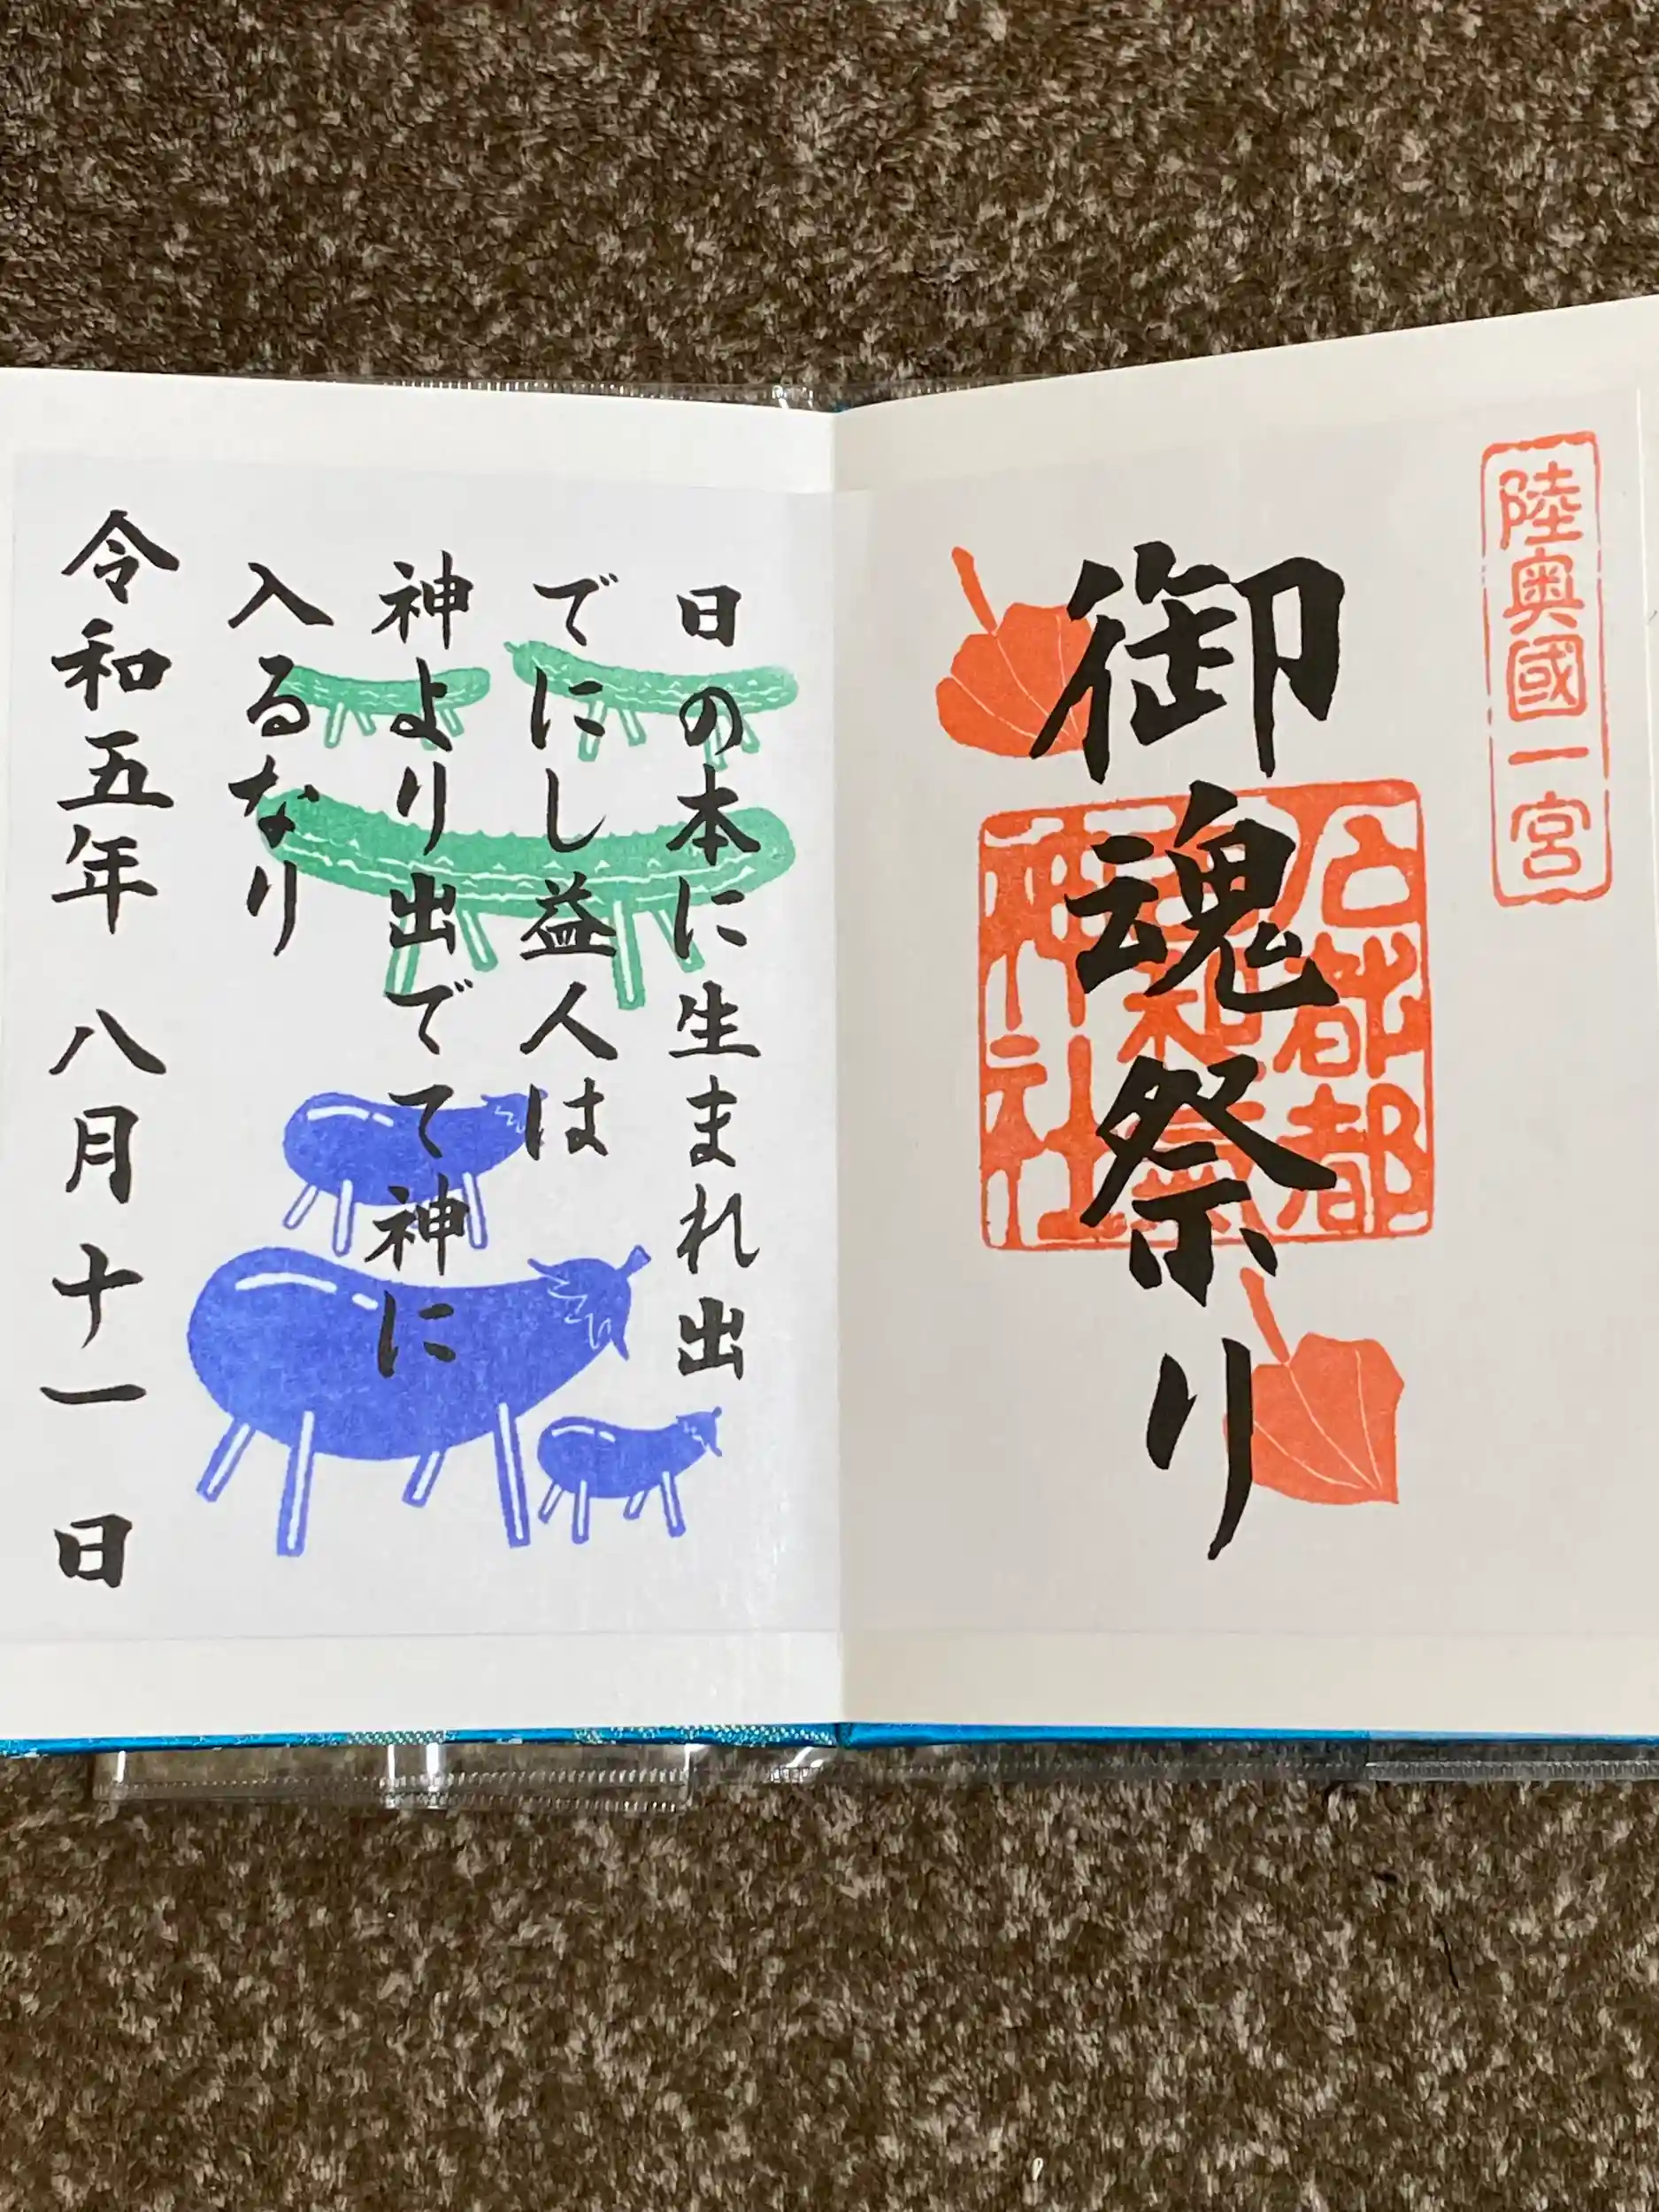 陸奥國一宮
御魂祭り
日の本に生まれ出
でにし益人は
神より出でて神に
入るなり
令和五年 八月十一日